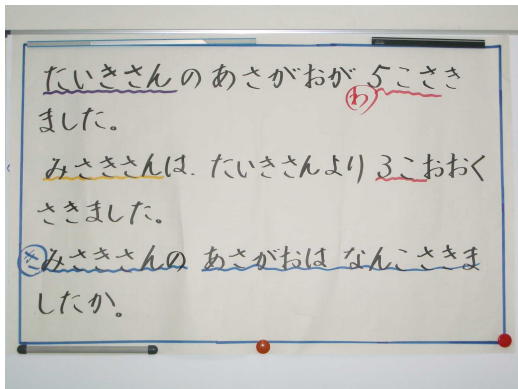 たいきさんのあさがおが5こさき
わ
ました。
みさきさんは、たいきさんより3こおおく
さきました。
き みさきさんの あさがおは なんこさきま
したか。